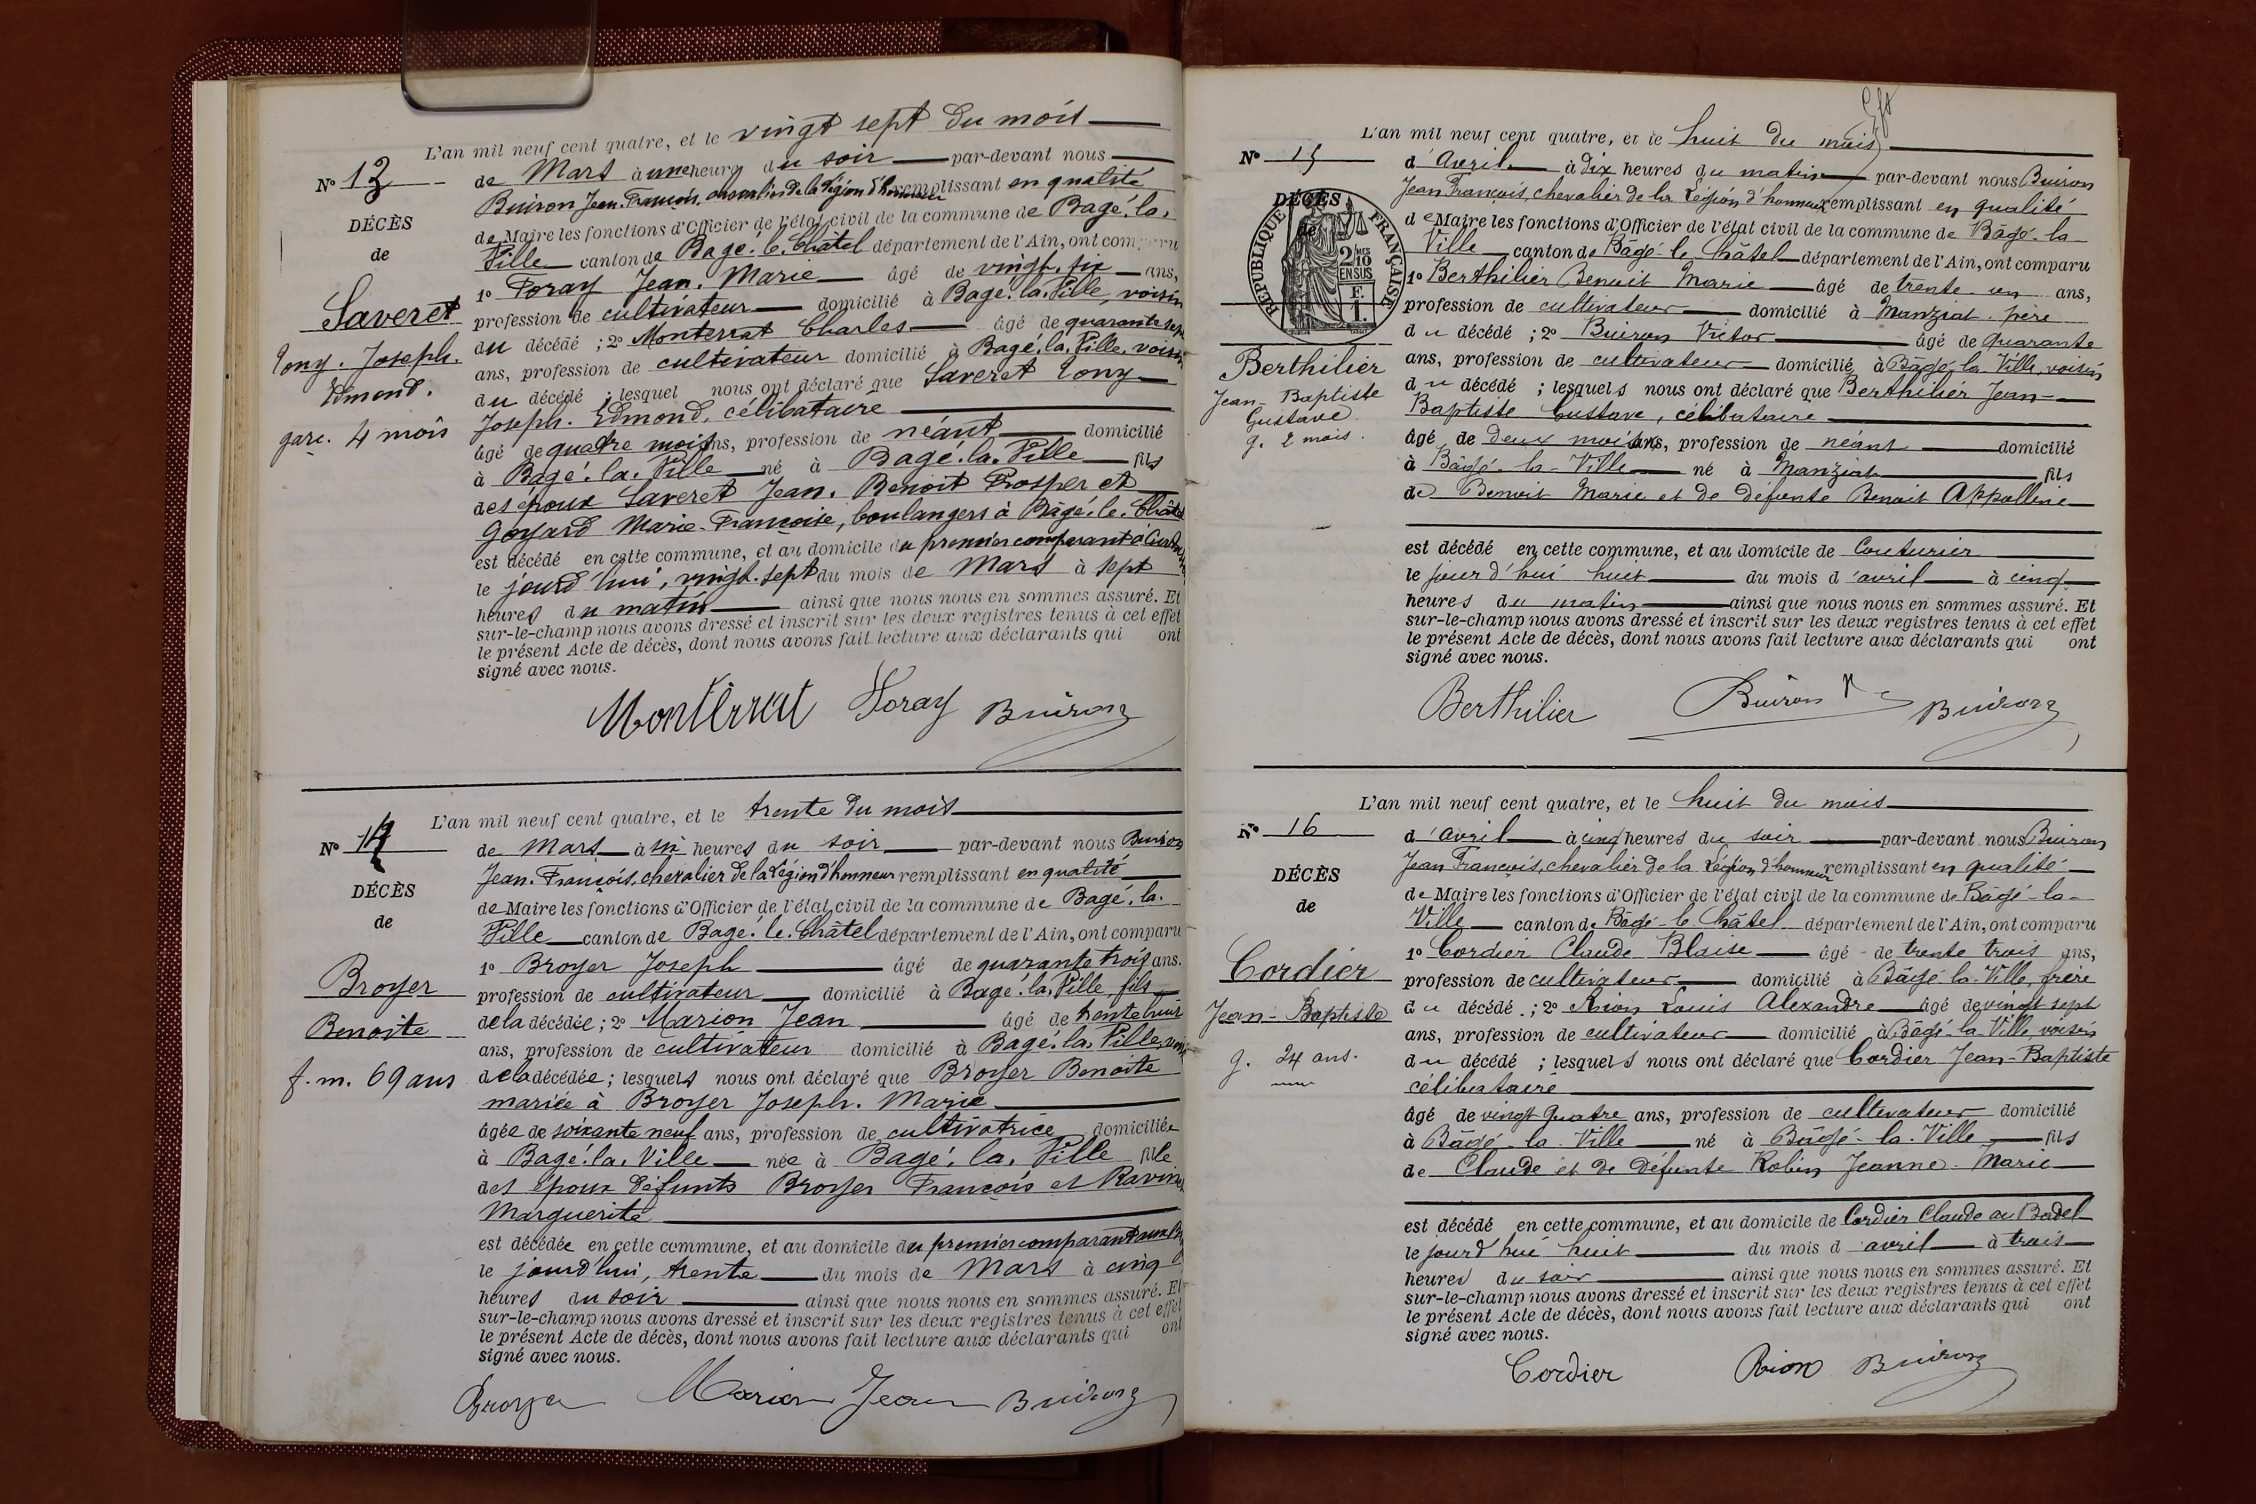 L'an mil neuf cent quatre, et le vingt sept du mois
No 13
de Mars à une heure du soir par-devant nous
Buiron Jean-François, chevalier de la Légion d'honneur remplissant en qualité
DÉCÈS
de Maire les fonctions d'Officier de l'état civil de la commune de Bagé-la-
de
Ville canton de Bagé-le-Châtel département de l'Ain, ont comparu
1o Foray Jean-Marie âgé de vingt-six ans,
Saveret
profession de cultivateur domicilié à Bagé-la-Ville, voisin
du décédé ; 2o Monterrat Charles âgé de quarante sept
Tony-Joseph-
ans, profession de cultivateur domicilié à Bagé-la-Ville, voisin
Edmond.
du décédé ; lesquel nous ont déclaré que Saveret Tony
Joseph-Edmond, célibataire
garc. 4 mois
âgé de quatre mois ans, profession de néant domicilié
à Bagé-la-Ville né à Bagé-la-Ville fils
des époux Saveret Jean-Benoit Prosper et
Goyard Marie-Françoise, boulangers à Bâgé-le-Châtel
est décédé en cette commune, et au domicile du premier comparant
le jourd'hui, vingt-sept du mois de Mars à sept
heures du matin ainsi que nous nous en sommes assuré. Et
sur-le-champ nous avons dressé et inscrit sur les deux registres tenus à cet effet
le présent Acte de décès, dont nous avons fait lecture aux déclarants qui ont
signé avec nous.
Monterrat Foray Buiron
L'an mil neuf cent quatre, et le trente du mois
No 14
de Mars à six heures du soir par-devant nous Buiron
Jean-François, chevalier de la Légion d'honneur remplissant en qualité
DÉCÈS
de Maire les fonctions d'Officier de l'état civil de la commune de Bagé-la-
de
Ville canton de Bagé-le-Châtel département de l'Ain, ont comparu
1o Broyer Joseph âgé de quarante trois ans.
Broyer
profession de cultivateur domicilié à Bagé-la-Ville fils
Benoite
de la décédée ; 2o Marion Jean âgé de trente huit
ans, profession de cultivateur domicilié à Bagé-la-Ville
f. m. 69 ans
de la décédée ; lesquels nous ont déclaré que Broyer Benoite
mariée à Broyer Joseph-Marie
âgée de soixante neuf ans, profession de cultivatrice domiciliée
à Bagé-la-Ville née à Bagé-la-Ville fille
des époux défunts Broyer François et
Marguerite
est décédée en cette commune, et au domicile du premier comparant
le jourd'hui, trente du mois de Mars à cinq
heures du soir ainsi que nous nous en sommes assuré. Et
sur-le-champ nous avons dressé et inscrit sur les deux registres tenus à cet effet
le présent Acte de décès, dont nous avons fait lecture aux déclarants qui ont
signé avec nous.
Broyer Marion Jean Buiron
L'an mil neuf cent quatre, et le huit du mois
No 15
d'Avril à dix heures du matin par-devant nous Buiron
Jean François, chevalier de la Légion d'honneur remplissant en qualité
DÉCÈS
de
RÉPUBLIQUE FRANÇAISE
2 10 MES EN SUS
F. 1.
de Maire les fonctions d'Officier de l'état civil de la commune de Bâgé-la
Ville canton de Bâgé-le-Châtel département de l'Ain, ont comparu
1o Berthilier Benoit Marie âgé de trente un ans,
profession de cultivateur domicilié à Manziat père
du décédé ; 2o Buiron Victor âgé de quarante
Berthilier
ans, profession de cultivateur domicilié à Bâgé-la-Ville voisin
Jean-Baptiste
du décédé ; lesquels nous ont déclaré que Berthilier Jean-
Gustave
Baptiste Gustave, célibataire
g. 2 mois.
âgé de deux mois ans, profession de néant domicilié
à Bâgé-la-Ville né à Manziat fils
de Benoit Marie et de défunte Benoit Appollinie
est décédé en cette commune, et au domicile de Couturier
le jourd'hui huit du mois d'avril à cinq
heures du matin ainsi que nous nous en sommes assuré. Et
sur-le-champ nous avons dressé et inscrit sur les deux registres tenus à cet effet
le présent Acte de décès, dont nous avons fait lecture aux déclarants qui ont
signé avec nous.
Berthilier Buiron Buiron
L'an mil neuf cent quatre, et le huit du mois
No 16
d'Avril à cinq heures du soir par-devant nous Buiron
Jean François, chevalier de la Légion d'honneur remplissant en qualité
DÉCÈS
de Maire les fonctions d'Officier de l'état civil de la commune de Bâgé-la-
de
Ville canton de Bâgé-le-Châtel département de l'Ain, ont comparu
1o Cordier Claude Blaise âgé de trente trois ans,
Cordier
profession de cultivateur domicilié à Bâgé-la-Ville, frère
Jean-Baptiste
du décédé ; 2o Rion Louis Alexandre âgé de vingt sept
ans, profession de cultivateur domicilié à Bâgé-la-Ville voisin
g. 24 ans.
du décédé ; lesquels nous ont déclaré que Cordier Jean-Baptiste
célibataire
âgé de vingt quatre ans, profession de cultivateur domicilié
à Bâgé-la-Ville né à Bâgé-la-Ville fils
de Claude et de défunte Robin Jeanne-Marie
est décédé en cette commune, et au domicile de Cordier Claude au Badel
le jourd'hui huit du mois d avril à trois
heures du soir ainsi que nous nous en sommes assuré. Et
sur-le-champ nous avons dressé et inscrit sur les deux registres tenus à cet effet
le présent Acte de décès, dont nous avons fait lecture aux déclarants qui ont
signé avec nous.
Cordier Rion Buiron